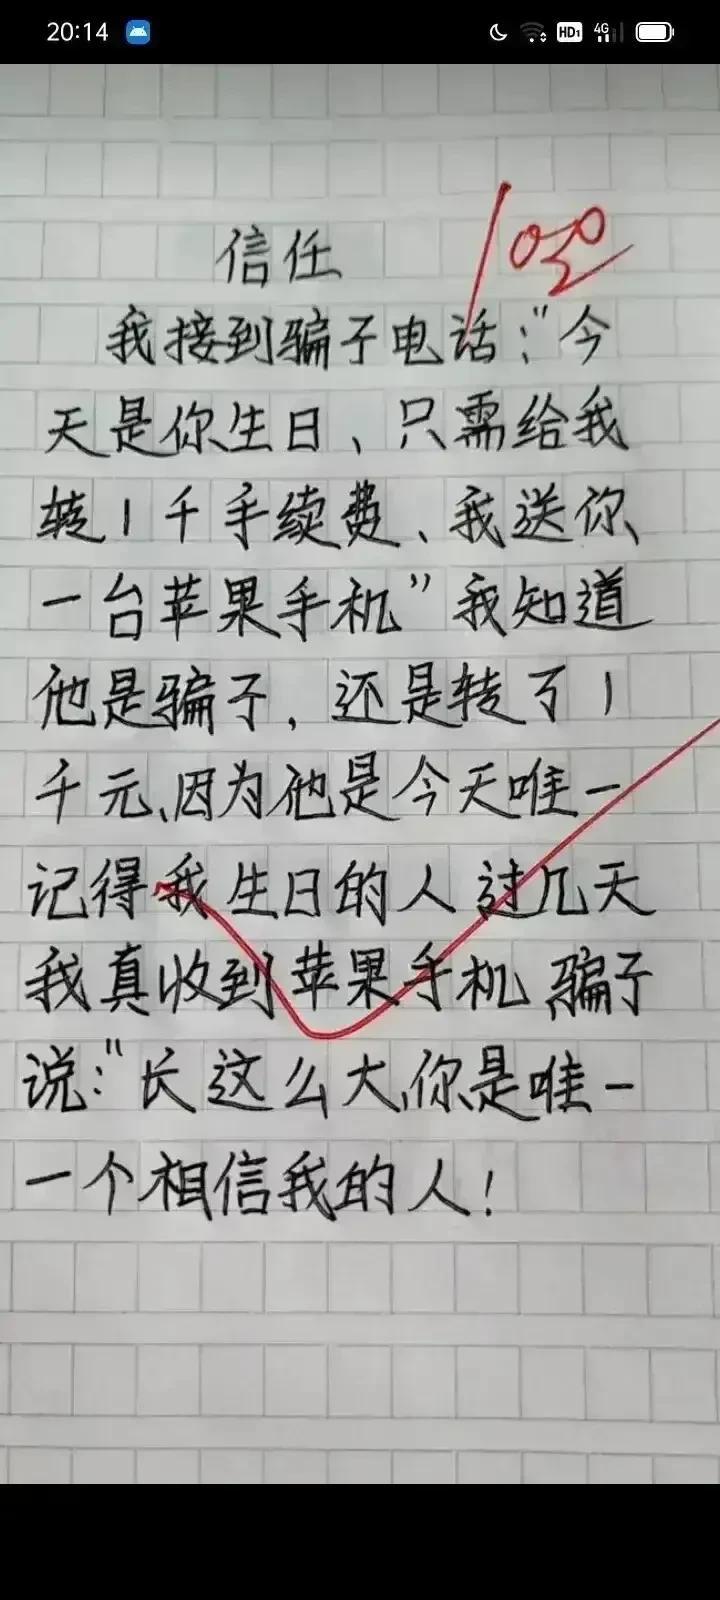 20:14
HD1 4G
信任
100
我接到骗子电话:"今
天是你生日、只需给我
转1千手续费、我送你
一台苹果手机"我知道
他是骗子,还是转了1
千元、因为他是今天唯一
记得我生日的人 过几天
我真收到苹果手机 骗子
说:"长这么大,你是唯一
一个相信我的人!